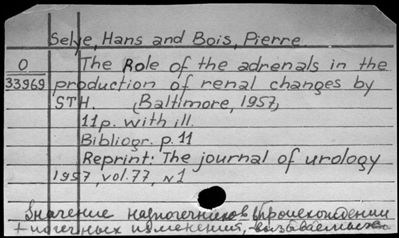 Selye, Hans and Bois, Pierre
O The Role of the adrenals in the
33969 production of renal changes by
STH. (Baltimore, 1957,
11p. with ill.
Bibliogr. p. 11
Reprint: The journal of urology
1957, vol. 77, N1
Значение надпочечников в происхождении
почечных изменений, вызываемых